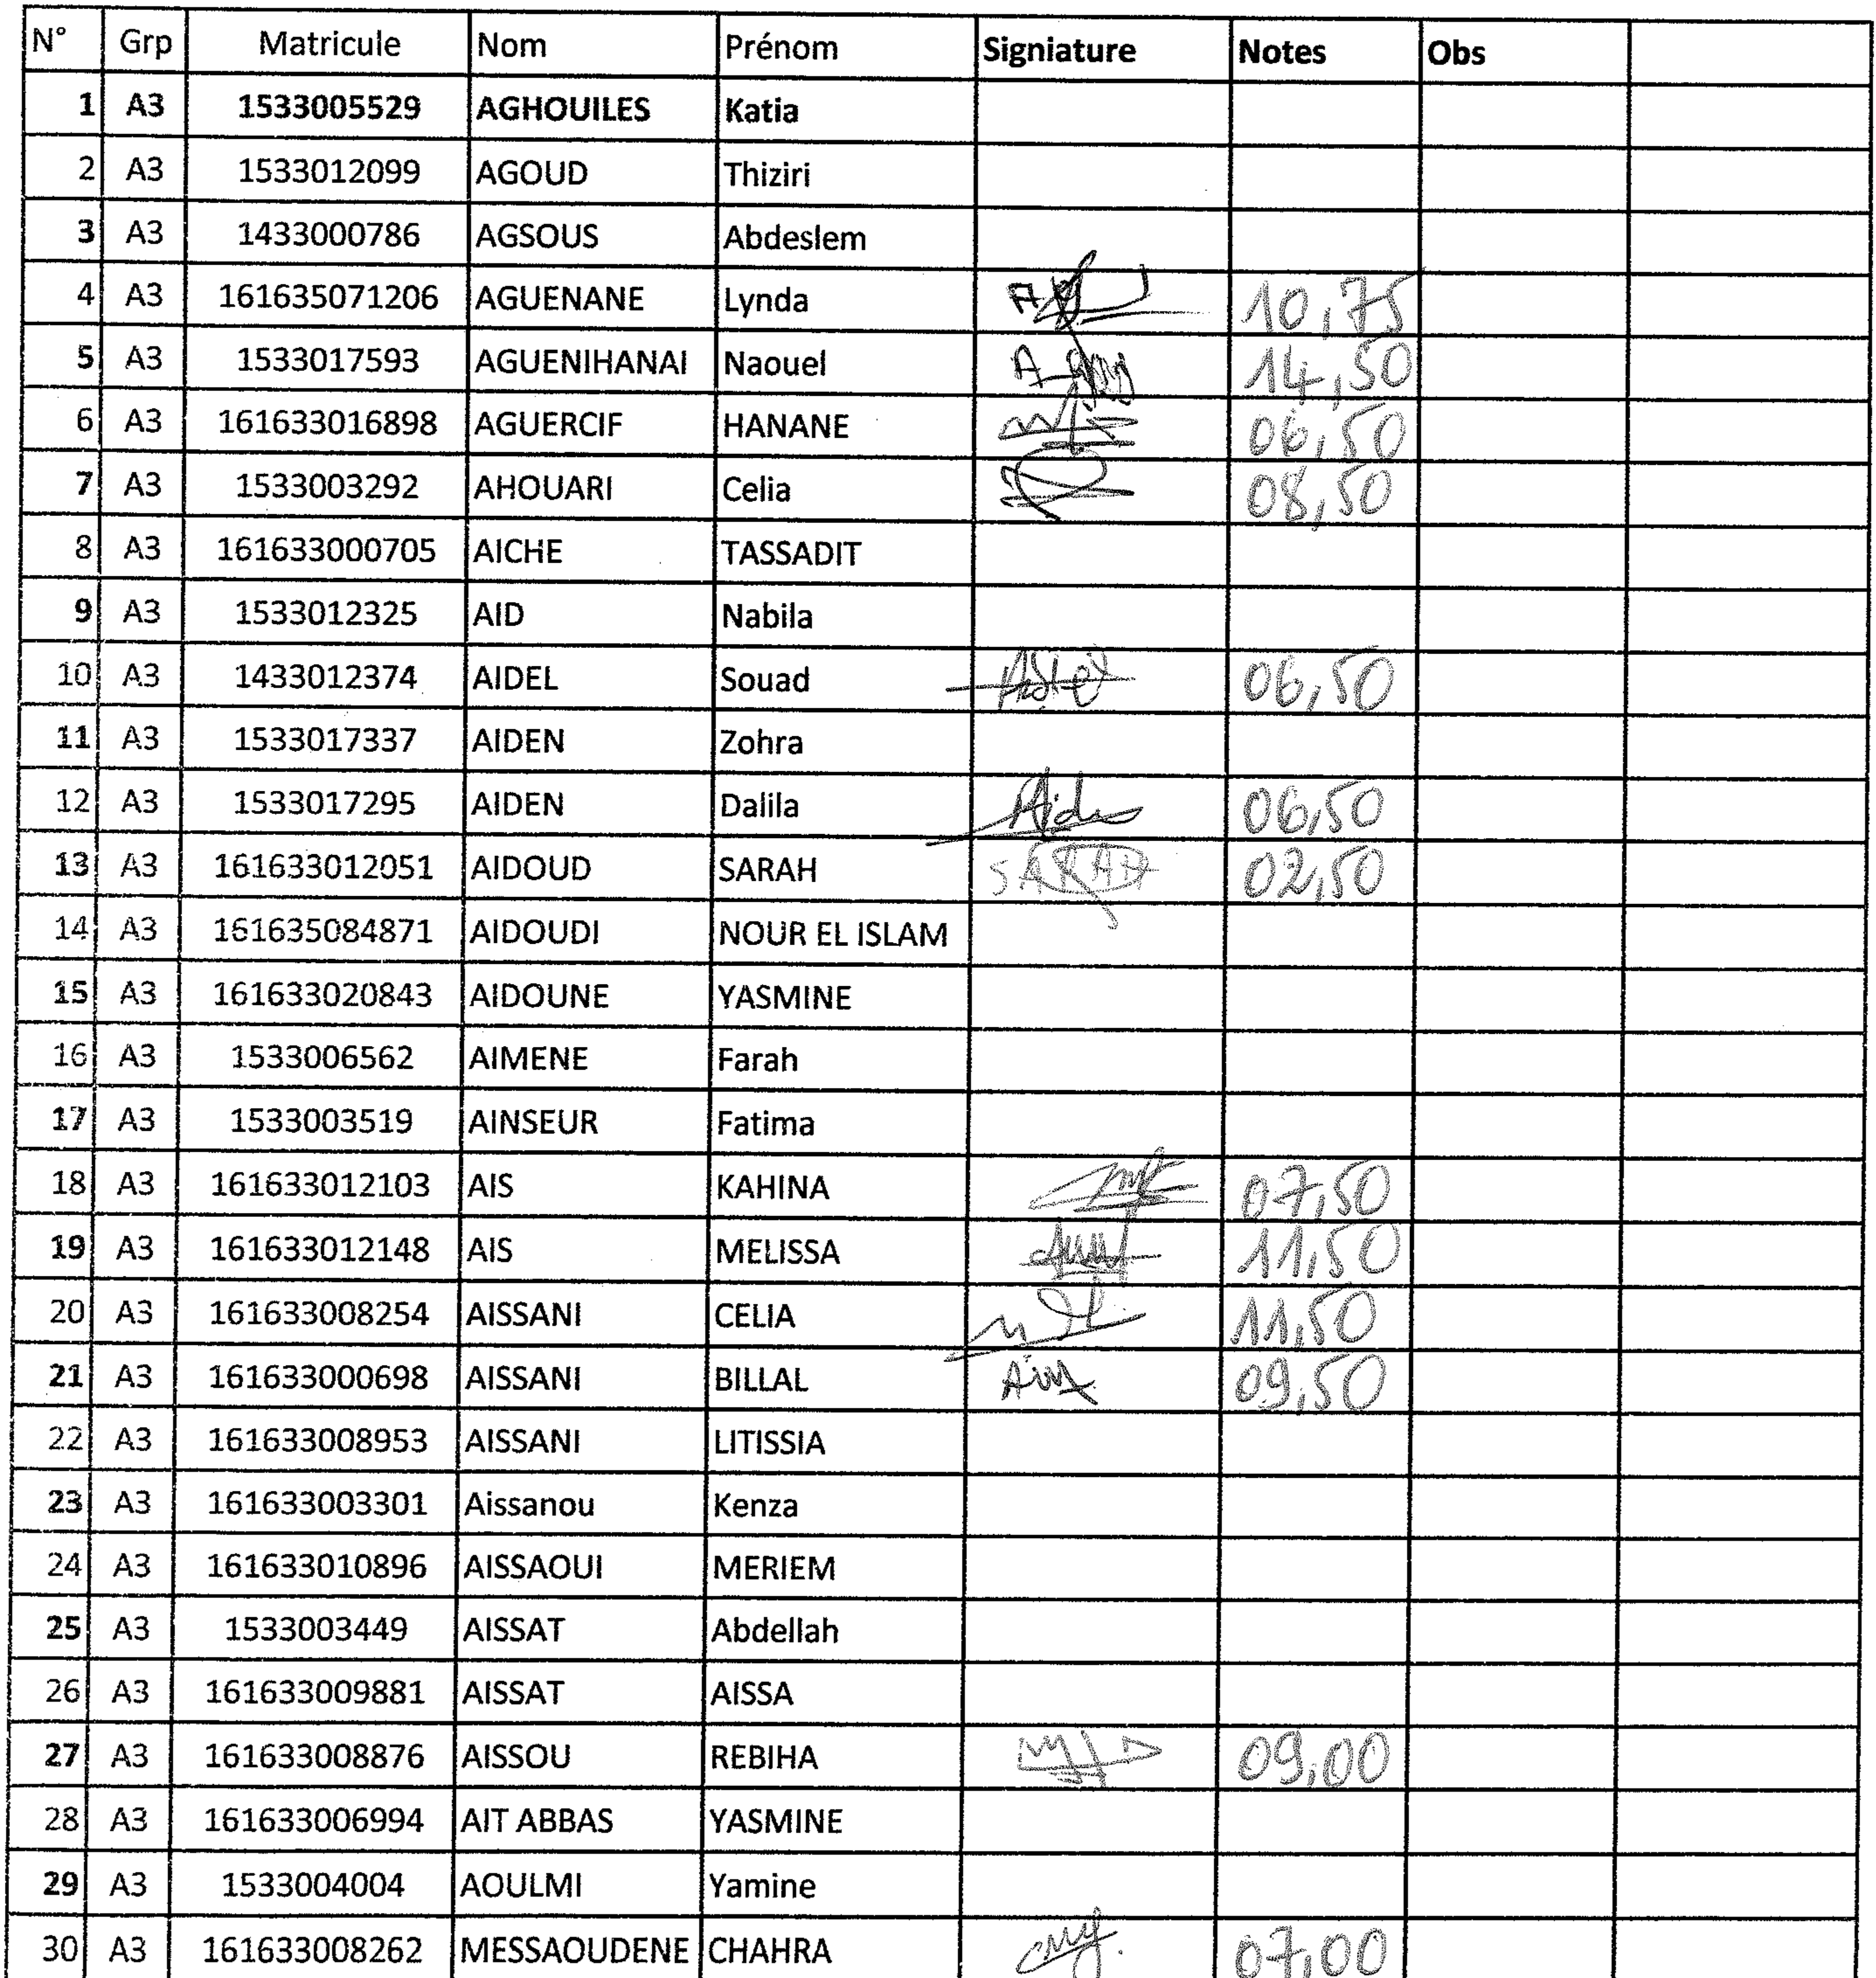 N° Grp Matricule Nom Prénom Signiature Notes Obs
1 A3 1533005529 AGHOUILES Katia
2 A3 1533012099 AGOUD Thiziri
3 A3 1433000786 AGSOUS Abdeslem
4 A3 161635071206 AGUENANE Lynda 10,75
5 A3 1533017593 AGUENIHANAI Naouel 14,50
6 A3 161633016898 AGUERCIF HANANE 06,50
7 A3 1533003292 AHOUARI Celia 08,50
8 A3 161633000705 AICHE TASSADIT
9 A3 1533012325 AID Nabila
10 A3 1433012374 AIDEL Souad 06,50
11 A3 1533017337 AIDEN Zohra
12 A3 1533017295 AIDEN Dalila 06,50
13 A3 161633012051 AIDOUD SARAH SARAH 02,50
14 A3 161635084871 AIDOUDI NOUR EL ISLAM
15 A3 161633020843 AIDOUNE YASMINE
16 A3 1533006562 AIMENE Farah
17 A3 1533003519 AINSEUR Fatima
18 A3 161633012103 AIS KAHINA 07,50
19 A3 161633012148 AIS MELISSA 11,50
20 A3 161633008254 AISSANI CELIA 11,50
21 A3 161633000698 AISSANI BILLAL 09,50
22 A3 161633008953 AISSANI LITISSIA
23 A3 161633003301 Aissanou Kenza
24 A3 161633010896 AISSAOUI MERIEM
25 A3 1533003449 AISSAT Abdellah
26 A3 161633009881 AISSAT AISSA
27 A3 161633008876 AISSOU REBIHA 09,00
28 A3 161633006994 AIT ABBAS YASMINE
29 A3 1533004004 AOULMI Yamine
30 A3 161633008262 MESSAOUDENE CHAHRA 07,00